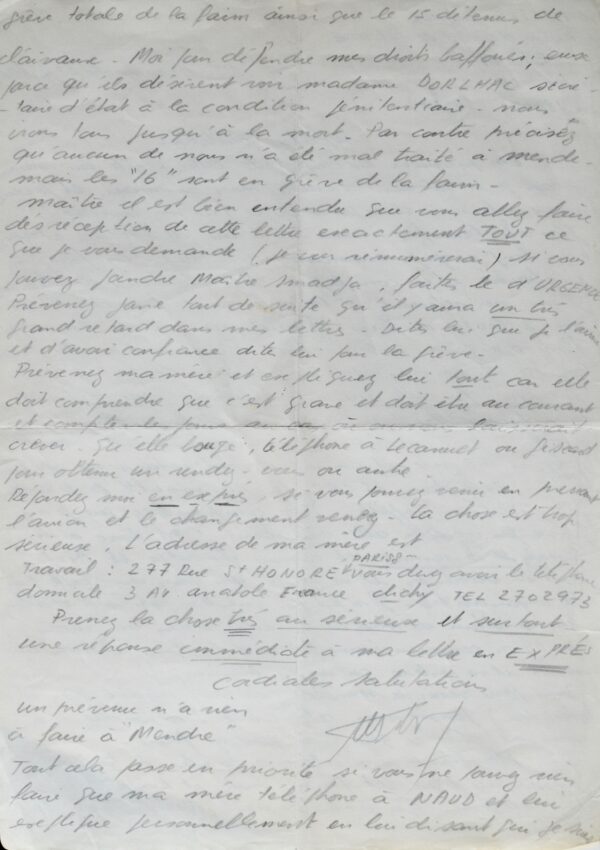 grève totale de la faim ainsi que le 15 détenus de
clairvaux. Moi pour défendre mes droits baffoués, eux
parce qu'ils désirent voir madame DORLHAC secré-
-taire d'état à la condition pénitentiaire - nous
irons tous jusqu'à la mort. Par contre précisez
qu'aucun de nous n'a été mal traité à mende.
mais les "16" sont en grève de la faim -
maître il est bien entendu que vous allez faire
dès réception de cette lettre exactement TOUT ce
que je vous demande (je vous rémunérerai) si vous
pouvez joindre Maître Smadja, faites le d'URGENCE
Prévenez tout de suite qu'il y aura un très
grand retard dans mes lettres. Dites lui que je l'aime
et d'avoir confiance dites lui pour la grève.
Prévenez ma mère et expliquez lui tout car elle
doit comprendre que c'est grave et doit être au courant
et
crever. Qu'elle bouge, téléphone à Lecanuet ou Giscard
pour obtenir un rendez-vous ou autre
Répondez moi en exprès, si vous pouvez venir en prenant
l'avion et le changement venez. La chose est trop
sérieuse. L'adresse de ma mère est
Travail : 277 Rue St HONORE PARIS8 vous devez avoir le téléphone
domicile 3 Av. anatole France clichy TEL 2702973
Prenez la chose très au sérieuse et surtout
une réponse immédiate à ma lettre en EXPRÈS
cordiales salutations
un prévenu n'a rien
à faire à "Mende"
Tout cela passe en priorité si vous ne pouvez rien
faire que ma mère téléphone à NAUD et lui
explique personnellement en lui disant que je suis